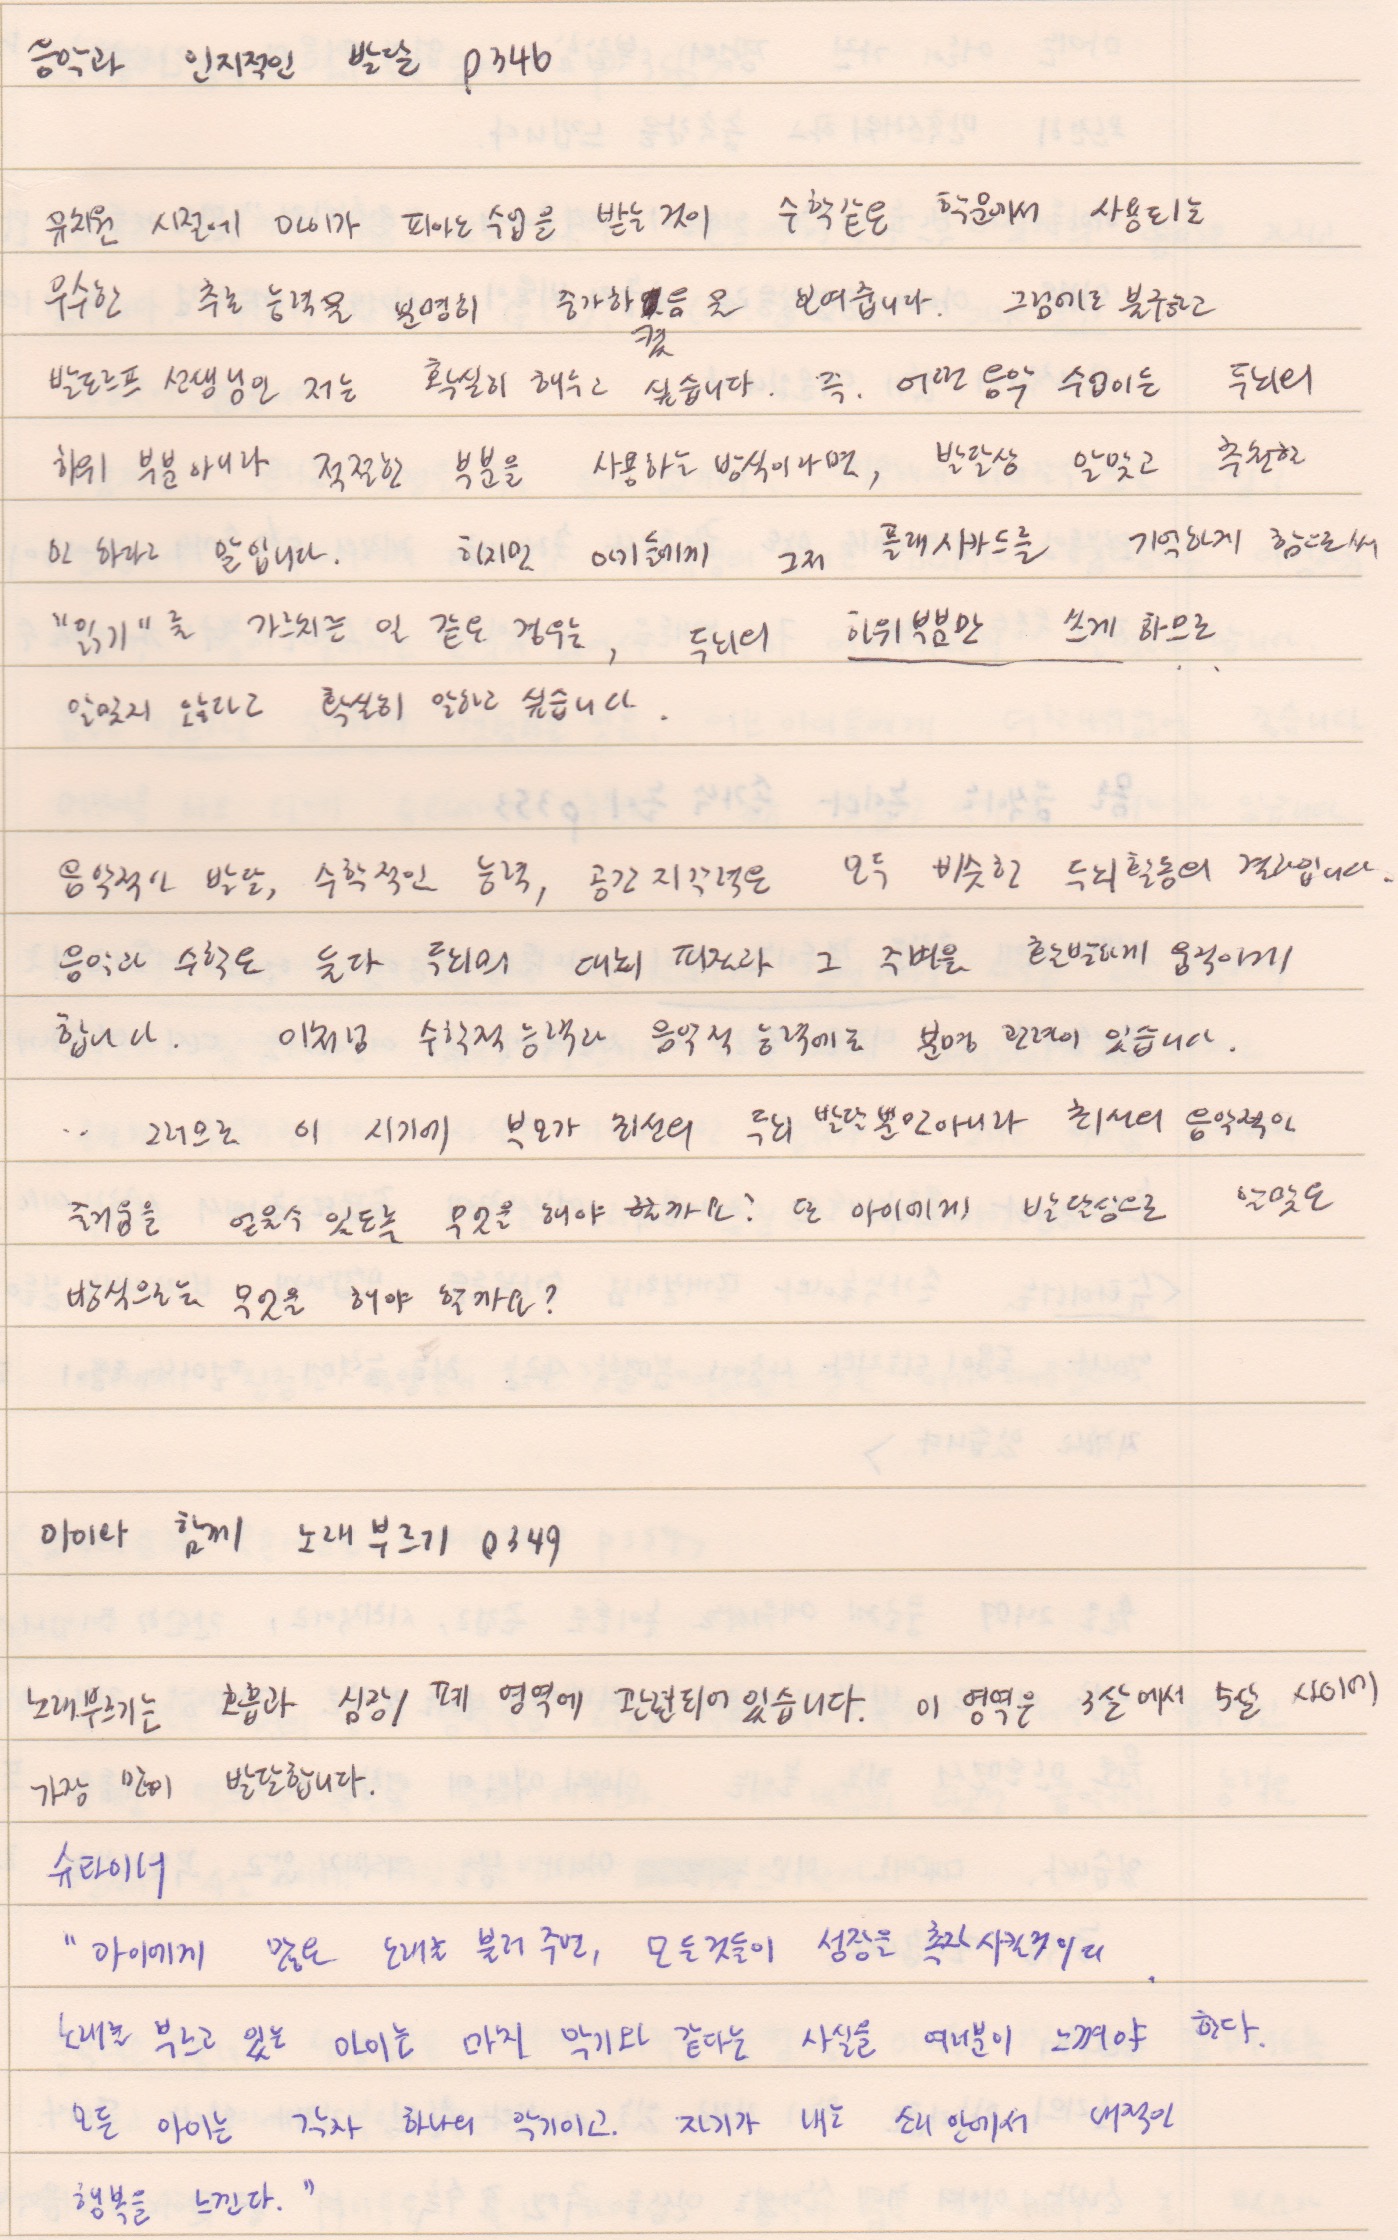 음악과 인지적인 발달 p346
유치원 시절에 아이가 피아노 수업을 받는 것이 수학같은 학문에서 사용되는
우수한 추론 능력을 분명히 증가하음 을 보여줍니다. 그럼에도 불구하고
켰
발도르프 선생님인 저는 확실히 해두고 싶습니다. 즉. 어떤 음악 수업이든 두뇌의
하위 부분아니라 적절한 부분을 사용하는 방식이라면, 발달상 알맞고 추천할
만 하다고 말입니다. 하지만 아기들에게 그저 플래시카드를 기억하게 함으로써
"읽기"를 가르치는 일 같은 경우는, 두뇌의 하위부분만 쓰게 하므로
알맞지 않다고 확실히 말하고 싶습니다.
음악적인 발달, 수학적인 능력, 공간 지각력은 모두 비슷한 두뇌활동의 결과입니다.
음악과 수학은 둘다 두뇌의 대뇌 피질과 그 주변을 활발하게 움직이게
합니다. 이처럼 수학적 능력과 음악적 능력에는 분명 관련이 있습니다.
.. 그러므로 이 시기에 부모가 최선의 두뇌 발달뿐만아니라 최선의 음악적인
즐거움을 얻을수 있도록 무엇을 해야 할까요? 또 아이에게 발달상으로 알맞은
방식으로는 무엇을 해야 할까요?
아이와 함께 노래 부르기 p349
노래부르기는 호흡과 심장/ 폐 영역에 관련되어 있습니다. 이 영역은 3살에서 5살 사이에
가장 많이 발달합니다.
슈타이너
"아이에게 맞는 노래를 불러 주면, 모든것들이 성장을 촉진 시킬것이다.
노래를 부르고 있는 아이는 마치 악기와 같다는 사실을 여러분이 느껴야 한다.
모든 아이는 각자 하나의 악기이고. 자기가 내는 소리 안에서 내적인
행복을 느낀다."